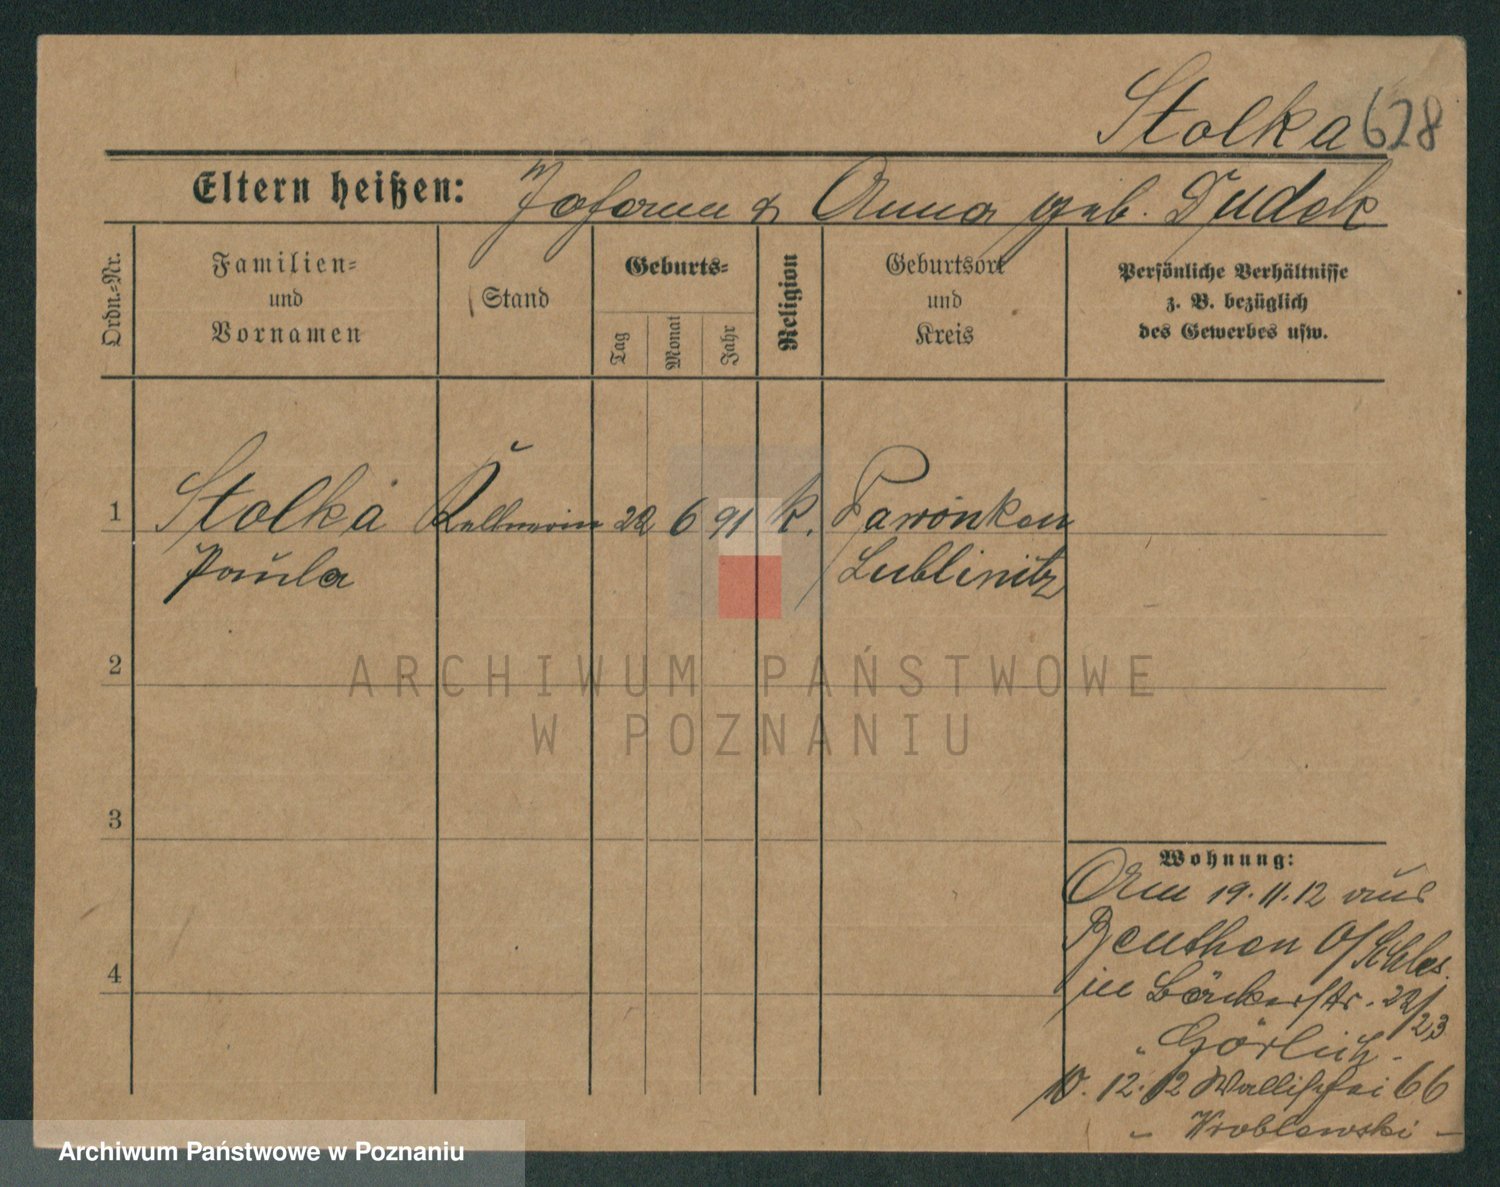 Stolka 628
Eltern heißen: Johann & Anna geb. Dudek
Ordn.-Nr.
Familien-
und
Vornamen
Stand
Geburts-
Tag
Monat
Jahr
Religion
Geburtsort
und
Kreis
Persönliche Verhältnisse
z. B. bezüglich
des Gewerbes usw.
1 Stolka Kellnerin 22 6 91 k. Pawonkau
Paula Lublinitz
2
3
4
Wohnung:
Am 19.11.12 aus
Beuthen O/Schles.
in Bäckerstr. 22/23
" Görlich -
10.12.12 Wallischei 66
- Wroblewski -
ARCHIWUM PAŃSTWOWE
W POZNANIU
Archiwum Państwowe w Poznaniu